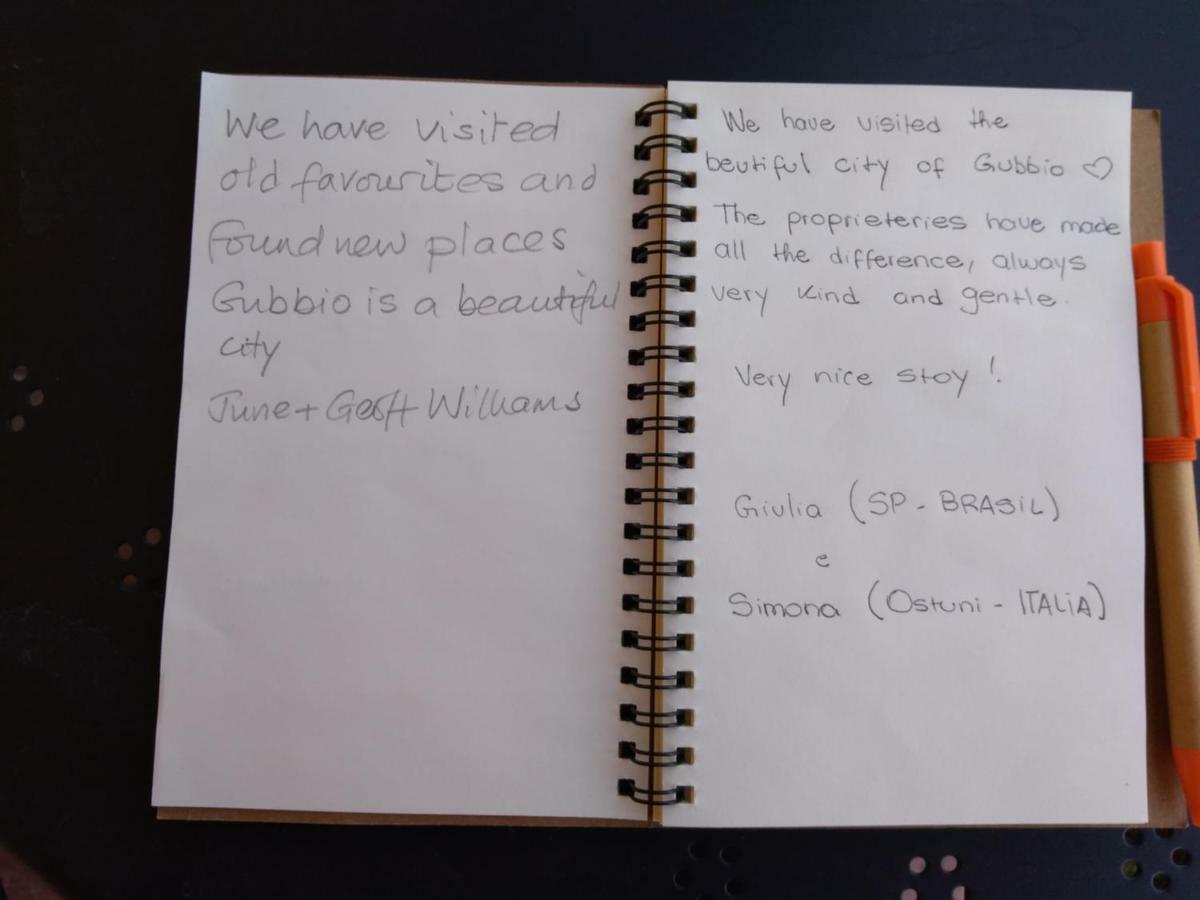 We have visited
old favourites and
found new places
Gubbio is a beautiful
city
June + Geoff Williams
We have visited the
beutiful city of Gubbio ♡
The proprieteries have made
all the difference, always
very kind and gentle.
Very nice stay !
Giulia (SP - BRASIL)
e
Simona (Ostuni - ITALIA)